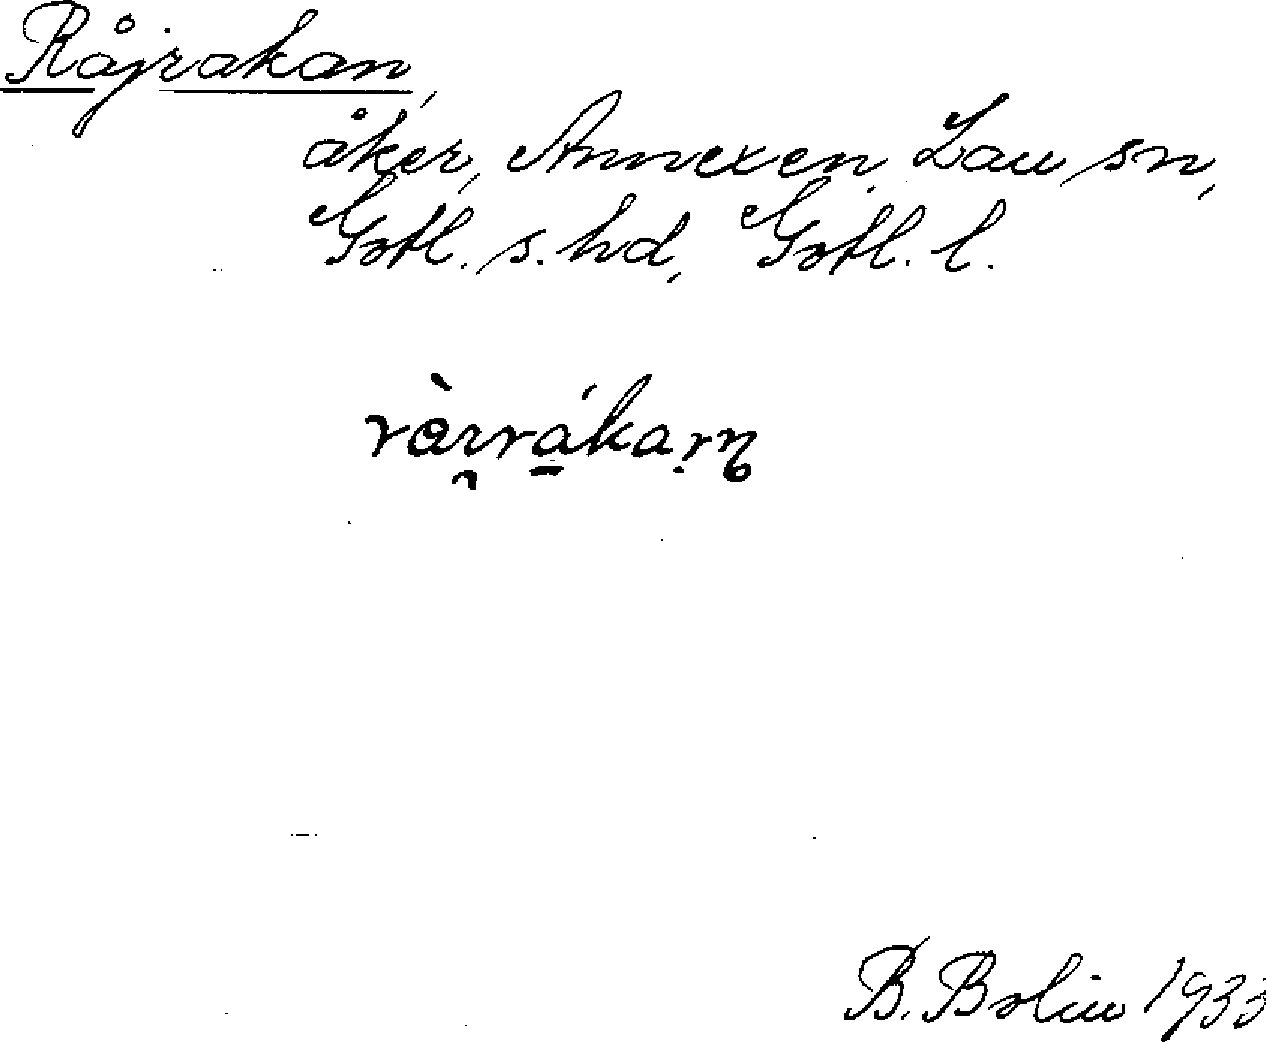 Råjrakan,
åker, Annexen, Lau sn,
Gotl. s. hd, Gotl. l.
B. Bolin 1933